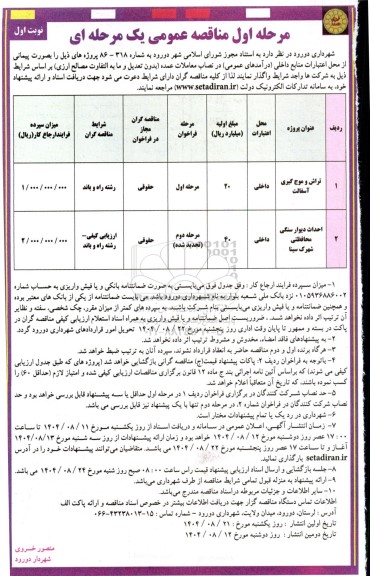 نوبت اول
مرحله اول مناقصه عمومی یک مرحله ای
شهرداری دورود در نظر دارد به استناد مجوز شورای اسلامی شهر دورود به شماره ۳۱۸ - ۸۶ پروژه های ذیل را بصورت پیمانی
از محل اعتبارات منابع داخلی (درآمدهای عمومی) در نصاب معاملات عمده (بدون تعدیل و ما به التفاوت مصالح ارزی) بر اساس شرایط
ذیل به شرکت ها واجد شرایط واگذار نمایند لذا از کلیه مناقصه گران دارای شرایط دعوت می شود جهت دریافت اسناد و ارائه پیشنهاد
خود، به سامانه تدارکات الکترونیک دولت (www.setadiran.ir) مراجعه نمایند.
ردیف | عنوان پروژه | محل اعتبارات | مبلغ اولیه (میلیارد ریال) | مرحله فراخوان | مناقصه گران مجاز در فراخوان | شرایط مناقصه گران | میزان سپرده فرایندارجاع کار(ریال)
۱ | تراش و موج گیری آسفالت | داخلی | ۲۰ | مرحله اول | حقوقی | رشته راه و باند | ۱/۰۰۰/۰۰۰/۰۰۰
۲ | احداث دیوار سنگی محافظتی شهرک سینا | داخلی | ۴۰ | مرحله دوم (تجدید شده) | حقوقی | ارزیابی کیفی- رشته راه و باند | ۲/۰۰۰/۰۰۰/۰۰۰
۱- میزان سپرده فرایند ارجاع کار: وفق جدول فوق می‌بایستی به صورت ضمانتنامه بانکی و یا فیش واریزی به حساب شماره
۰۱۰۵۹۳۶۸۸۶۰۰۲ نزد بانک ملی شعبه بلوار به نام شهرداری دورود می بایست ضمانتنامه از یکی از بانک های معتبر بوده
و همچنین ضمانتنامه و یا فیش واریزی می‌بایستی بنام شرکت باشد. به سپرده های کمتر از میزان مقرر، چک شخصی، سفته و نظایر
آن ترتیب اثر داده نخواهد شد. ضروریست اصل ضمانتنامه و یا فیش واریزی به همراه اسناد استعلام ارزیابی کیفی مناقصه گران در
پاکت در بسته و ممهور تا پایان وقت اداری روز پنجشنبه مورخ ۲۲ / ۰۸ / ۱۴۰۴ تحویل امور قراردادهای شهرداری دورود گردد.
۲- به پیشنهادهای فاقد امضاء، مخدوش و مشروط ترتیب اثر داده نخواهد شد.
۳- هرگاه برنده اول و دوم مناقصه حاضر به انعقاد قرارداد نشوند، سپرده آنان به ترتیب ضبط خواهد شد.
۴- باتوجه به فراخوان ردیف ۲، پاکات پیشنهاد قیمت(ج) مناقصه گرانی بازگشایی خواهد شد (پروژه های که طبق جدول ارزیابی
کیفی می شوند) که براساس آئین نامه اجرایی بند ج ماده ۱۲ قانون برگزاری مناقصات ارزیابی کیفی شده و امتیاز لازم (حداقل ۶۰) را
کسب نموده باشند، که تاریخ آن متعاقباً اعلام خواهد شد.
۵- حد نصاب شرکت کنندگان در برگزاری فراخوان ردیف ۱ در مرحله اول حداقل با سه پیشنهاد قابل بررسی خواهد بود و حد
نصاب شرکت کنندگان در فراخوان شماره ۲، در مرحله دوم تنها با یک پیشنهاد نیز قابل بررسی می باشد.
۶- شهرداری در رد یک یا تمام پیشنهادات مختار است.
۷- زمان انتشار آگهی، اعلان عمومی در سامانه و دریافت اسناد از روز یکشنبه مورخ ۱۱ / ۰۸ / ۱۴۰۴ تا ساعت
۱۷:۰۰ عصر روز دوشنبه مورخ ۱۲ / ۰۸ / ۱۴۰۴ خواهد بود و زمان ارائه پیشنهادات از روز سه شنبه مورخ ۱۴۰۴/۰۸/۱۳
آغاز و تا ساعت ۱۷ عصر روز پنجشنبه مورخ ۲۲ / ۰۸ / ۱۴۰۴ می باشد. متقاضیان می‌توانند پیشنهادات خود را در آدرس
setadiran.ir بارگذاری نمائید.
۸- جلسه بازگشایی و ارسال اسناد ارزیابی پیشنهاد قیمت راس ساعت ۰۸:۰۰ صبح روز شنبه مورخ ۲۴ / ۰۸ / ۱۴۰۴ می باشد.
۹- ارائه پیشنهاد به منزله قبول تمامی شرایط مناقصه از طرف شهرداری می‌باشد.
۱۰- سایر اطلاعات و جزئیات مربوطه دراسناد مناقصه مندرج می‌باشد.
اطلاعات تماس دستگاه مناقصه گزار جهت دریافت اطلاعات بیشتر در خصوص اسناد مناقصه و ارائه پاکت الف
آدرس: لرستان، دورود، میدان ولایت، شهرداری دورود - شماره تماس: ۱۵-۴۳۲۳۸۰۱۳-۰۶۶
تاریخ اولین انتشار: روز یکشنبه مورخ: ۱۱ / ۰۸ / ۱۴۰۴
تاریخ دومین انتشار: روز دوشنبه مورخ ۱۲ / ۰۸ / ۱۴۰۴
منصور خسروی
شهردار دورود